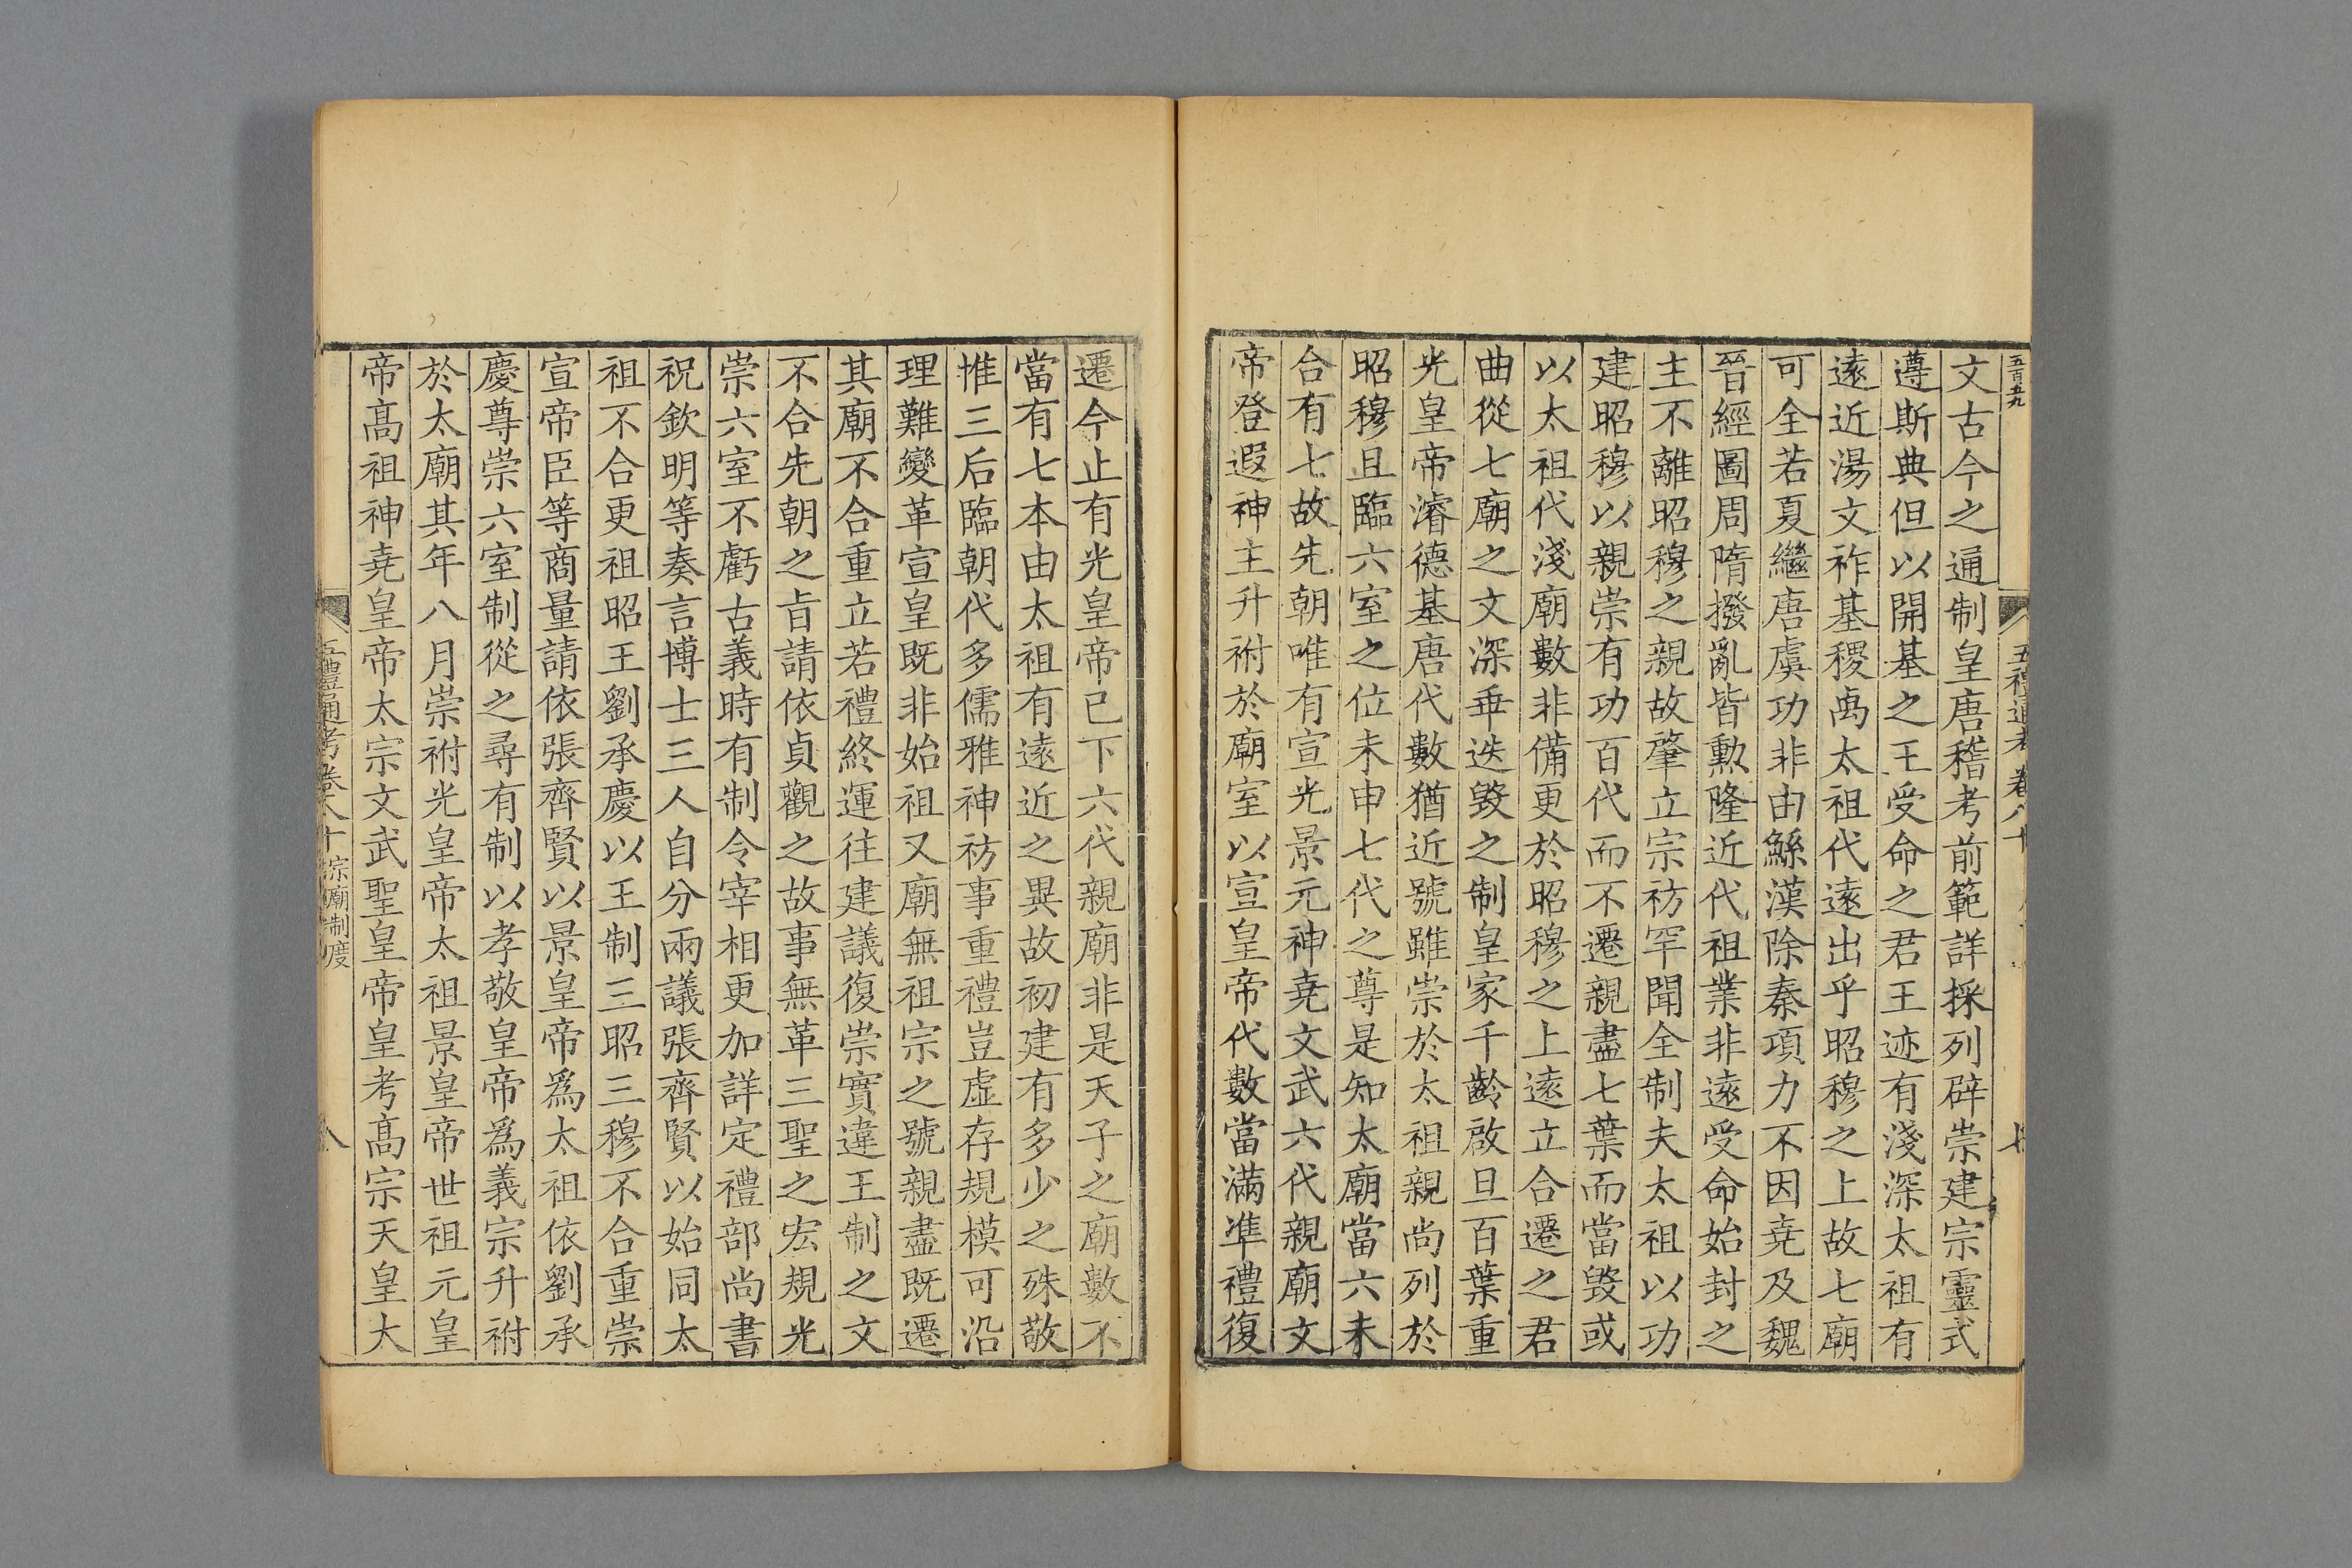 五百五九
五禮通考卷八十
七
文古今之通制皇唐稽考前範詳採列辟崇建宗靈式
遵斯典但以開基之王受命之君王迹有淺深太祖有
遠近湯文祚基稷卨太祖代遠出乎昭穆之上故七廟
可全若夏繼唐虞功非由鯀漢除秦項力不因堯及魏
晉經圖周隋撥亂皆勲隆近代祖業非遠受命始封之
主不離昭穆之親故肇立宗祊罕聞全制夫太祖以功
建昭穆以親崇有功百代而不遷親盡七葉而當毀或
以太祖代淺廟數非備更於昭穆之上遠立合遷之君
曲從七廟之文深乖迭毀之制皇家千齡啟旦百葉重
光皇帝濬德基唐代數猶近號雖崇於太祖親尚列於
昭穆且臨六室之位未申七代之尊是知太廟當六未
合有七故先朝唯有宣光景元神堯文武六代親廟文
帝登遐神主升祔於廟室以宣皇帝代數當滿準禮復
遷今止有光皇帝已下六代親廟非是天子之廟數不
當有七本由太祖有遠近之異故初建有多少之殊敬
惟三后臨朝代多儒雅神祊事重禮豈虛存規模可沿
理難變革宣皇既非始祖又廟無祖宗之號親盡既遷
其廟不合重立若禮終運往建議復崇實違王制之文
不合先朝之㫖請依貞觀之故事無革三聖之宏規光
崇六室不虧古義時有制令宰相更加詳定禮部尚書
祝欽明等奏言博士三人自分兩議張齊賢以始同太
祖不合更祖昭王劉承慶以王制三昭三穆不合重崇
宣帝臣等商量請依張齊賢以景皇帝為太祖依劉承
慶尊崇六室制從之尋有制以孝敬皇帝為義宗升祔
於太廟其年八月崇祔光皇帝太祖景皇帝世祖元皇
帝高祖神堯皇帝太宗文武聖皇帝皇考高宗天皇大
五禮通考卷八十 宗廟制度
八